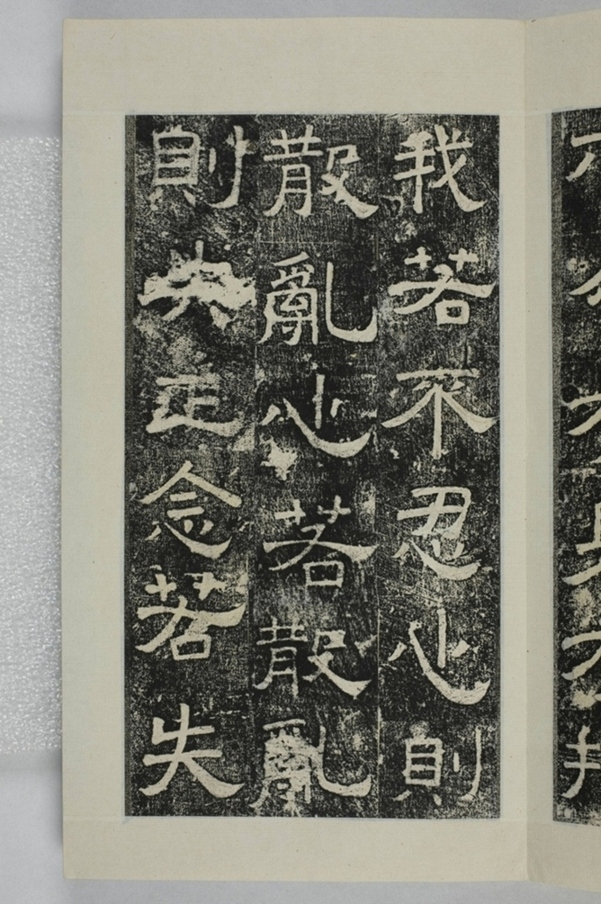 我若不忍心則
散亂心若散亂
則失正念若失